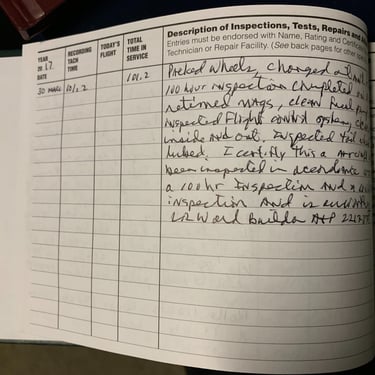 YEAR
20 17
DATE
RECORDING
TACH
TIME
TODAY'S
FLIGHT
TOTAL
TIME IN
SERVICE
Description of Inspections, Tests, Repairs and
Entries must be endorsed with Name, Rating and Certific
Technician or Repair Facility. (See back pages for other spec
30 MARC 101.2
101.2
Packed wheels, changed oil
100 hour inspection completed
retimed MAGS, clean fuel
inspected Flight control system,
inside And out. Inspected
lubed. I certify this a Aircraft
been inspected in accordance
a 100 hr Inspection And
inspection And is
Word Builder A+P